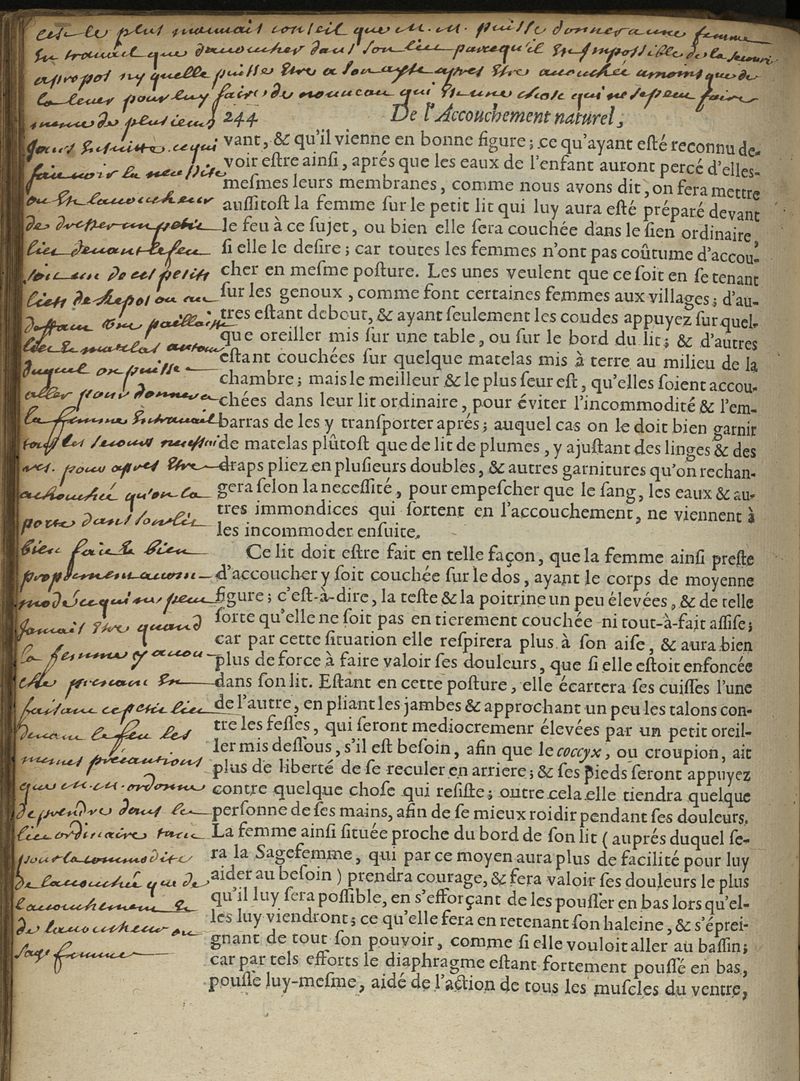 cest le plus mauuais conseil que M. M. puisse donner a une femme
En trauail que daccoucher dans son lict parcequ'il Est Impossible de la secourir
apropos ny quelle puisse Estre a son ayse apres Estre accouchée amoins que de
la leuer pour luy faire de nouueau qui Est une chose qui ne se peu faire
mesme de plusieurs
244 De l'Accouchement naturel,
vant, & qu'il vienne en bonne figure; ce qu'ayant esté reconnu de-
voir estre ainsi, aprés que les eaux de l'enfant auront percé d'elles-
mesmes leurs membranes, comme nous avons dit, on fera mettre
aussitost la femme sur le petit lit qui luy aura esté préparé devant
le feu à ce sujet, ou bien elle sera couchée dans le sien ordinaire,
si elle le desire; car toutes les femmes n'ont pas coûtume d'accou-
cher en mesme posture. Les unes veulent que ce soit en se tenant
sur les genoux, comme font certaines femmes aux villages; d'au-
tres estant debout, & ayant seulement les coudes appuyez sur quel-
que oreiller mis sur une table, ou sur le bord du lit; & d'autres
estant couchées sur quelque matelas mis à terre au milieu de la
chambre; mais le meilleur & le plus seur est, qu'elles soient accou-
chées dans leur lit ordinaire, pour éviter l'incommodité & l'em-
barras de les y transporter aprés; auquel cas on le doit bien garnir
de matelas plûtost que de lit de plumes, y ajustant des linges & des
draps pliez en plusieurs doubles, & autres garnitures qu'on rechan-
gera selon la necessité, pour empescher que le sang, les eaux & au-
tres immondices qui sortent en l'accouchement, ne viennent à
les incommoder ensuite.
Ce lit doit estre fait en telle façon, que la femme ainsi preste
d'accoucher y soit couchée sur le dos, ayant le corps de moyenne
figure; c'est-à-dire, la teste & la poitrine un peu élevées, & de telle
sorte qu'elle ne soit pas en tierement couchée ni tout-à-fait assise;
car par cette situation elle respirera plus à son aise, & aura bien
plus de force à faire valoir ses douleurs, que si elle estoit enfoncée
dans son lit. Estant en cette posture, elle écartera ses cuisses l'une
de l'autre, en pliant les jambes & approchant un peu les talons con-
tre les fesses, qui seront mediocremenr élevées par un petit oreil-
ler mis dessous, s'il est besoin, afin que le coccyx, ou croupion, ait
plus de liberté de se reculer en arriere; & ses pieds seront appuyez
contre quelque chose qui resiste; outre cela elle tiendra quelque
personne de ses mains, afin de se mieux roidir pendant ses douleurs.
La femme ainsi située proche du bord de son lit (auprés duquel se-
ra la Sagefemme, qui par ce moyen aura plus de facilité pour luy
aider au besoin) prendra courage, & fera valoir ses douleurs le plus
qu'il luy sera possible, en s'efforçant de les pousser en bas lors qu'el-
les luy viendront; ce qu'elle fera en retenant son haleine, & s'éprei-
gnant de tout son pouvoir, comme si elle vouloit aller au bassin;
car par tels efforts le diaphragme estant fortement poussé en bas,
pousse luy-mesme, aidé de l'action de tous les muscles du ventre,
jours Ensuitte ce qui
fait voir la necessité
ou Est laccoucheur
de dresser un petit
lict deuant le feu
soit un de ces petits
licts de Repos ou au
deffaut Une paillasse
Et matelas autour
duquel on puisse
aller pour donner a
la femme En trauail
tous les secours necessai
res. pour apres Estre
accouchée qu'on la
porte dans son lict
bien fait Et bien
proprement accom-
modé ce qui ne peu
Jamais Estre quand
la femme y accou-
che prenant En
faisant ce petit lict
deuant le feu les
mesmes précautions
que M. M. ordonne
de prendre dans le
lict ordinaire tant
pour la commodité
de laccouchée que de
laccouchement Et
de laccoucheur ou
sage femme